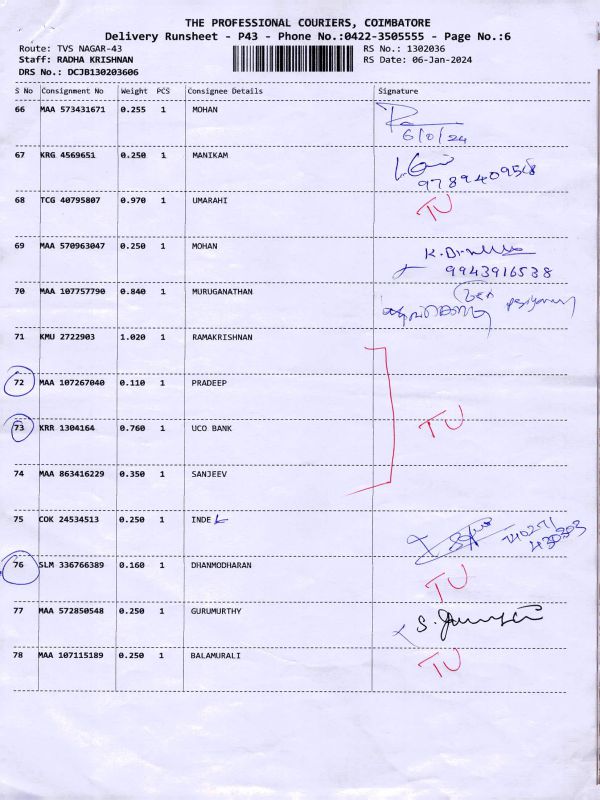 THE PROFESSIONAL COURIERS, COIMBATORE
Delivery Runsheet - P43 - Phone No.:0422-3505555 - Page No.:6
Route: TVS NAGAR-43 RS No.: 1302036
Staff: RADHA KRISHNAN RS Date: 06-Jan-2024
DRS No.: DCJB130203606
S No Consignment No Weight PCS Consignee Details Signature
66 MAA 573431671 0.255 1 MOHAN
6/0/24
67 KRG 4569651 0.250 1 MANIKAM
9789409508
68 TCG 40795807 0.970 1 UMARAHI TU
69 MAA 570963047 0.250 1 MOHAN
9943916538
70 MAA 107757790 0.840 1 MURUGANATHAN
71 KMU 2722903 1.020 1 RAMAKRISHNAN
72 MAA 107267040 0.110 1 PRADEEP
73 KRR 1304164 0.760 1 UCO BANK TU
74 MAA 863416229 0.350 1 SANJEEV
75 COK 24534513 0.250 1 INDE
76 SLM 336766389 0.160 1 DHANMODHARAN TU
77 MAA 572850548 0.250 1 GURUMURTHY
78 MAA 107115189 0.250 1 BALAMURALI TU